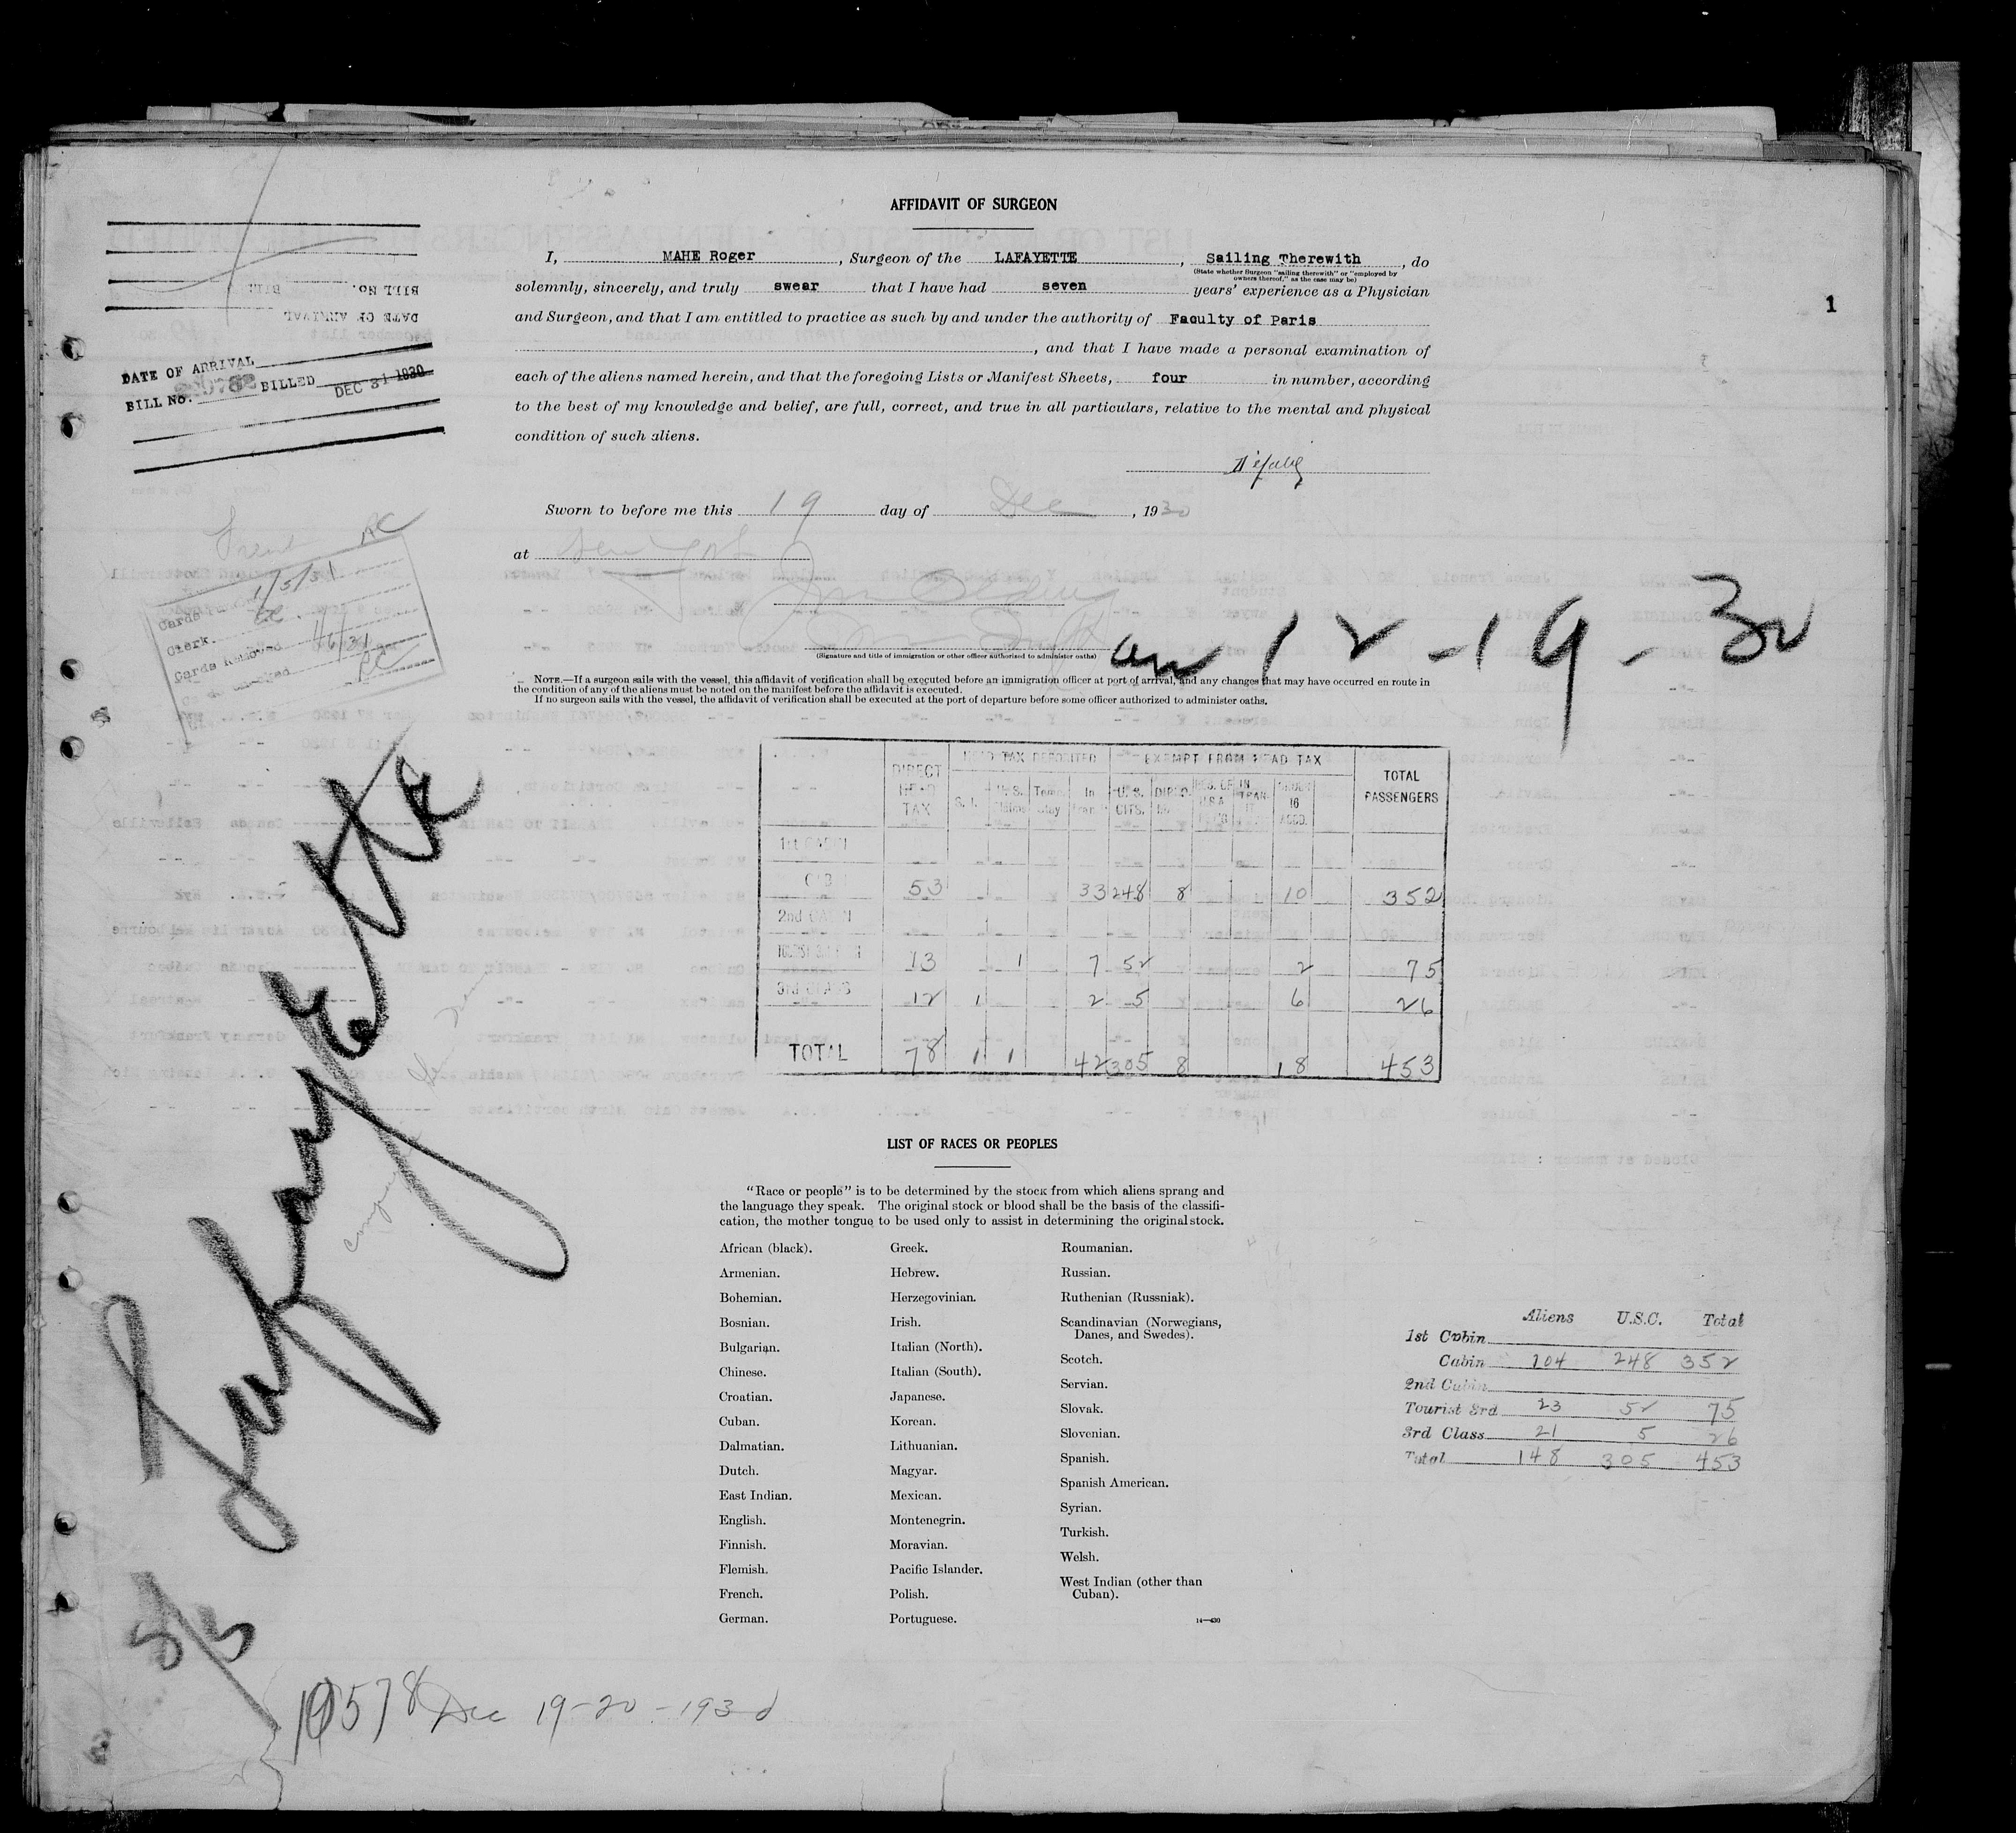 AFFIDAVIT OF SURGEON
I, MAHE Roger, Surgeon of the LAFAYETTE, Sailing Therewith, do
(State whether Surgeon "sailing therewith" or "employed by
owners thereof," as the case may be)
solemnly, sincerely, and truly swear that I have had seven years' experience as a Physician
and Surgeon, and that I am entitled to practice as such by and under the authority of Faculty of Paris
, and that I have made a personal examination of
each of the aliens named herein, and that the foregoing Lists or Manifest Sheets, four in number, according
to the best of my knowledge and belief, are full, correct, and true in all particulars, relative to the mental and physical
condition of such aliens.
Sworn to before me this 19 day of Dec, 1930
at
(Signature and title of immigration or other officer authorized to administer oaths)
NOTE.—If a surgeon sails with the vessel, this affidavit of verification shall be executed before an immigration officer at port of arrival, and any changes that may have occurred en route in
the condition of any of the aliens must be noted on the manifest before the affidavit is executed.
If no surgeon sails with the vessel, the affidavit of verification shall be executed at the port of departure before some officer authorized to administer oaths.
1
BILL NO. BILL
DATE OF ARRIVAL
DATE OF ARRIVAL
BILL No. BILLED DEC 31 1930
1/5/31
Cards
Clerk.
Cards Removed 1/6/31
12-19-30
DIRECT HEAD TAX
HEAD TAX DEPOSITED
EXEMPT FROM HEAD TAX
TOTAL PASSENGERS
S. I. In Tran U. S. CITS. DIPLO.
1st CABIN
CABIN 53 33 248 8 10 352
2nd CABIN
TOURIST 3rd 13 1 7 52 2 75
3rd CLASS 12 1 2 5 6 26
TOTAL 78 1 1 42 305 8 18 453
Lafayette
LIST OF RACES OR PEOPLES
"Race or people" is to be determined by the stock from which aliens sprang and
the language they speak. The original stock or blood shall be the basis of the classifi-
cation, the mother tongue to be used only to assist in determining the original stock.
African (black).
Armenian.
Bohemian.
Bosnian.
Bulgarian.
Chinese.
Croatian.
Cuban.
Dalmatian.
Dutch.
East Indian.
English.
Finnish.
Flemish.
French.
German.
Greek.
Hebrew.
Herzegovinian.
Irish.
Italian (North).
Italian (South).
Japanese.
Korean.
Lithuanian.
Magyar.
Mexican.
Montenegrin.
Moravian.
Pacific Islander.
Polish.
Portuguese.
Roumanian.
Russian.
Ruthenian (Russniak).
Scandinavian (Norwegians,
Danes, and Swedes).
Scotch.
Servian.
Slovak.
Slovenian.
Spanish.
Spanish American.
Syrian.
Turkish.
Welsh.
West Indian (other than
Cuban).
14—430
Aliens U.S.C. Total
1st Cabin
Cabin 104 248 352
2nd Cabin
Tourist 3rd 23 52 75
3rd Class 21 5 26
Total 148 305 453
S/S
10578 Dec 19-20-1930